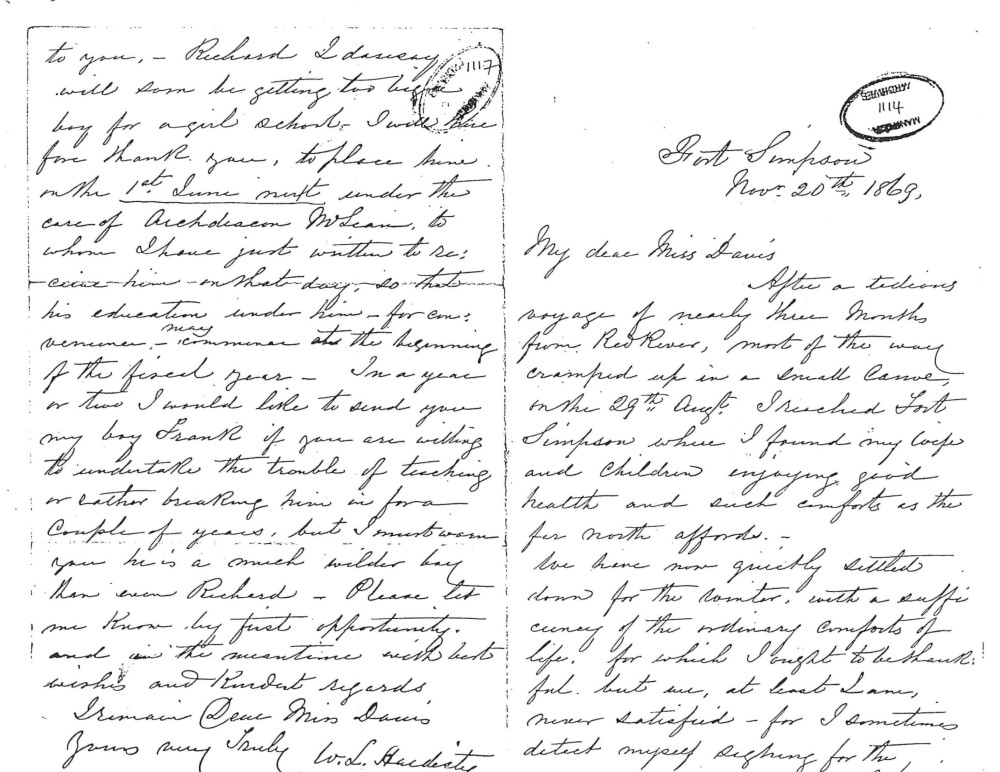 to you, – Richard I daresay
will soon be getting too big a
boy for a girl school. I will there
fore thank you, to place him
on the 1st June next under the
care of Archdeacon McLean, to
whom I have just written to re:
ceive him – on that day, so that
his education under him – for con:
venience, – may commence at the beginning
of the fiscal year – In a year
or two I would like to send you
my boy Frank if you are willing
to undertake the trouble of teaching
or rather breaking him in for a
couple of years, but I must warn
you he is a much wilder boy
than even Richard – Please let
me know by first opportunity.
and in the meantime with best
wishes and kindest regards
I remain Dear Miss Davis
Yours very Truly W. L. Hardisty
1117
ARCHIVES
1114
Fort Simpson
Novr 20th, 1869,
My dear Miss Davis
After a tedious
voyage of nearly three Months
from Red River, most of the way
cramped up in a small Canoe,
on the 29th Augt. I reached Fort
Simpson where I found my wife
and children enjoying good
health and such comforts as the
far north affords. –
We have now quietly settled
down for the winter, with a suffi
ciency of the ordinary comforts of
life. for which I ought to be thank:
ful. but we, at least I am,
never satisfied – for I sometimes
detect myself sighing for the